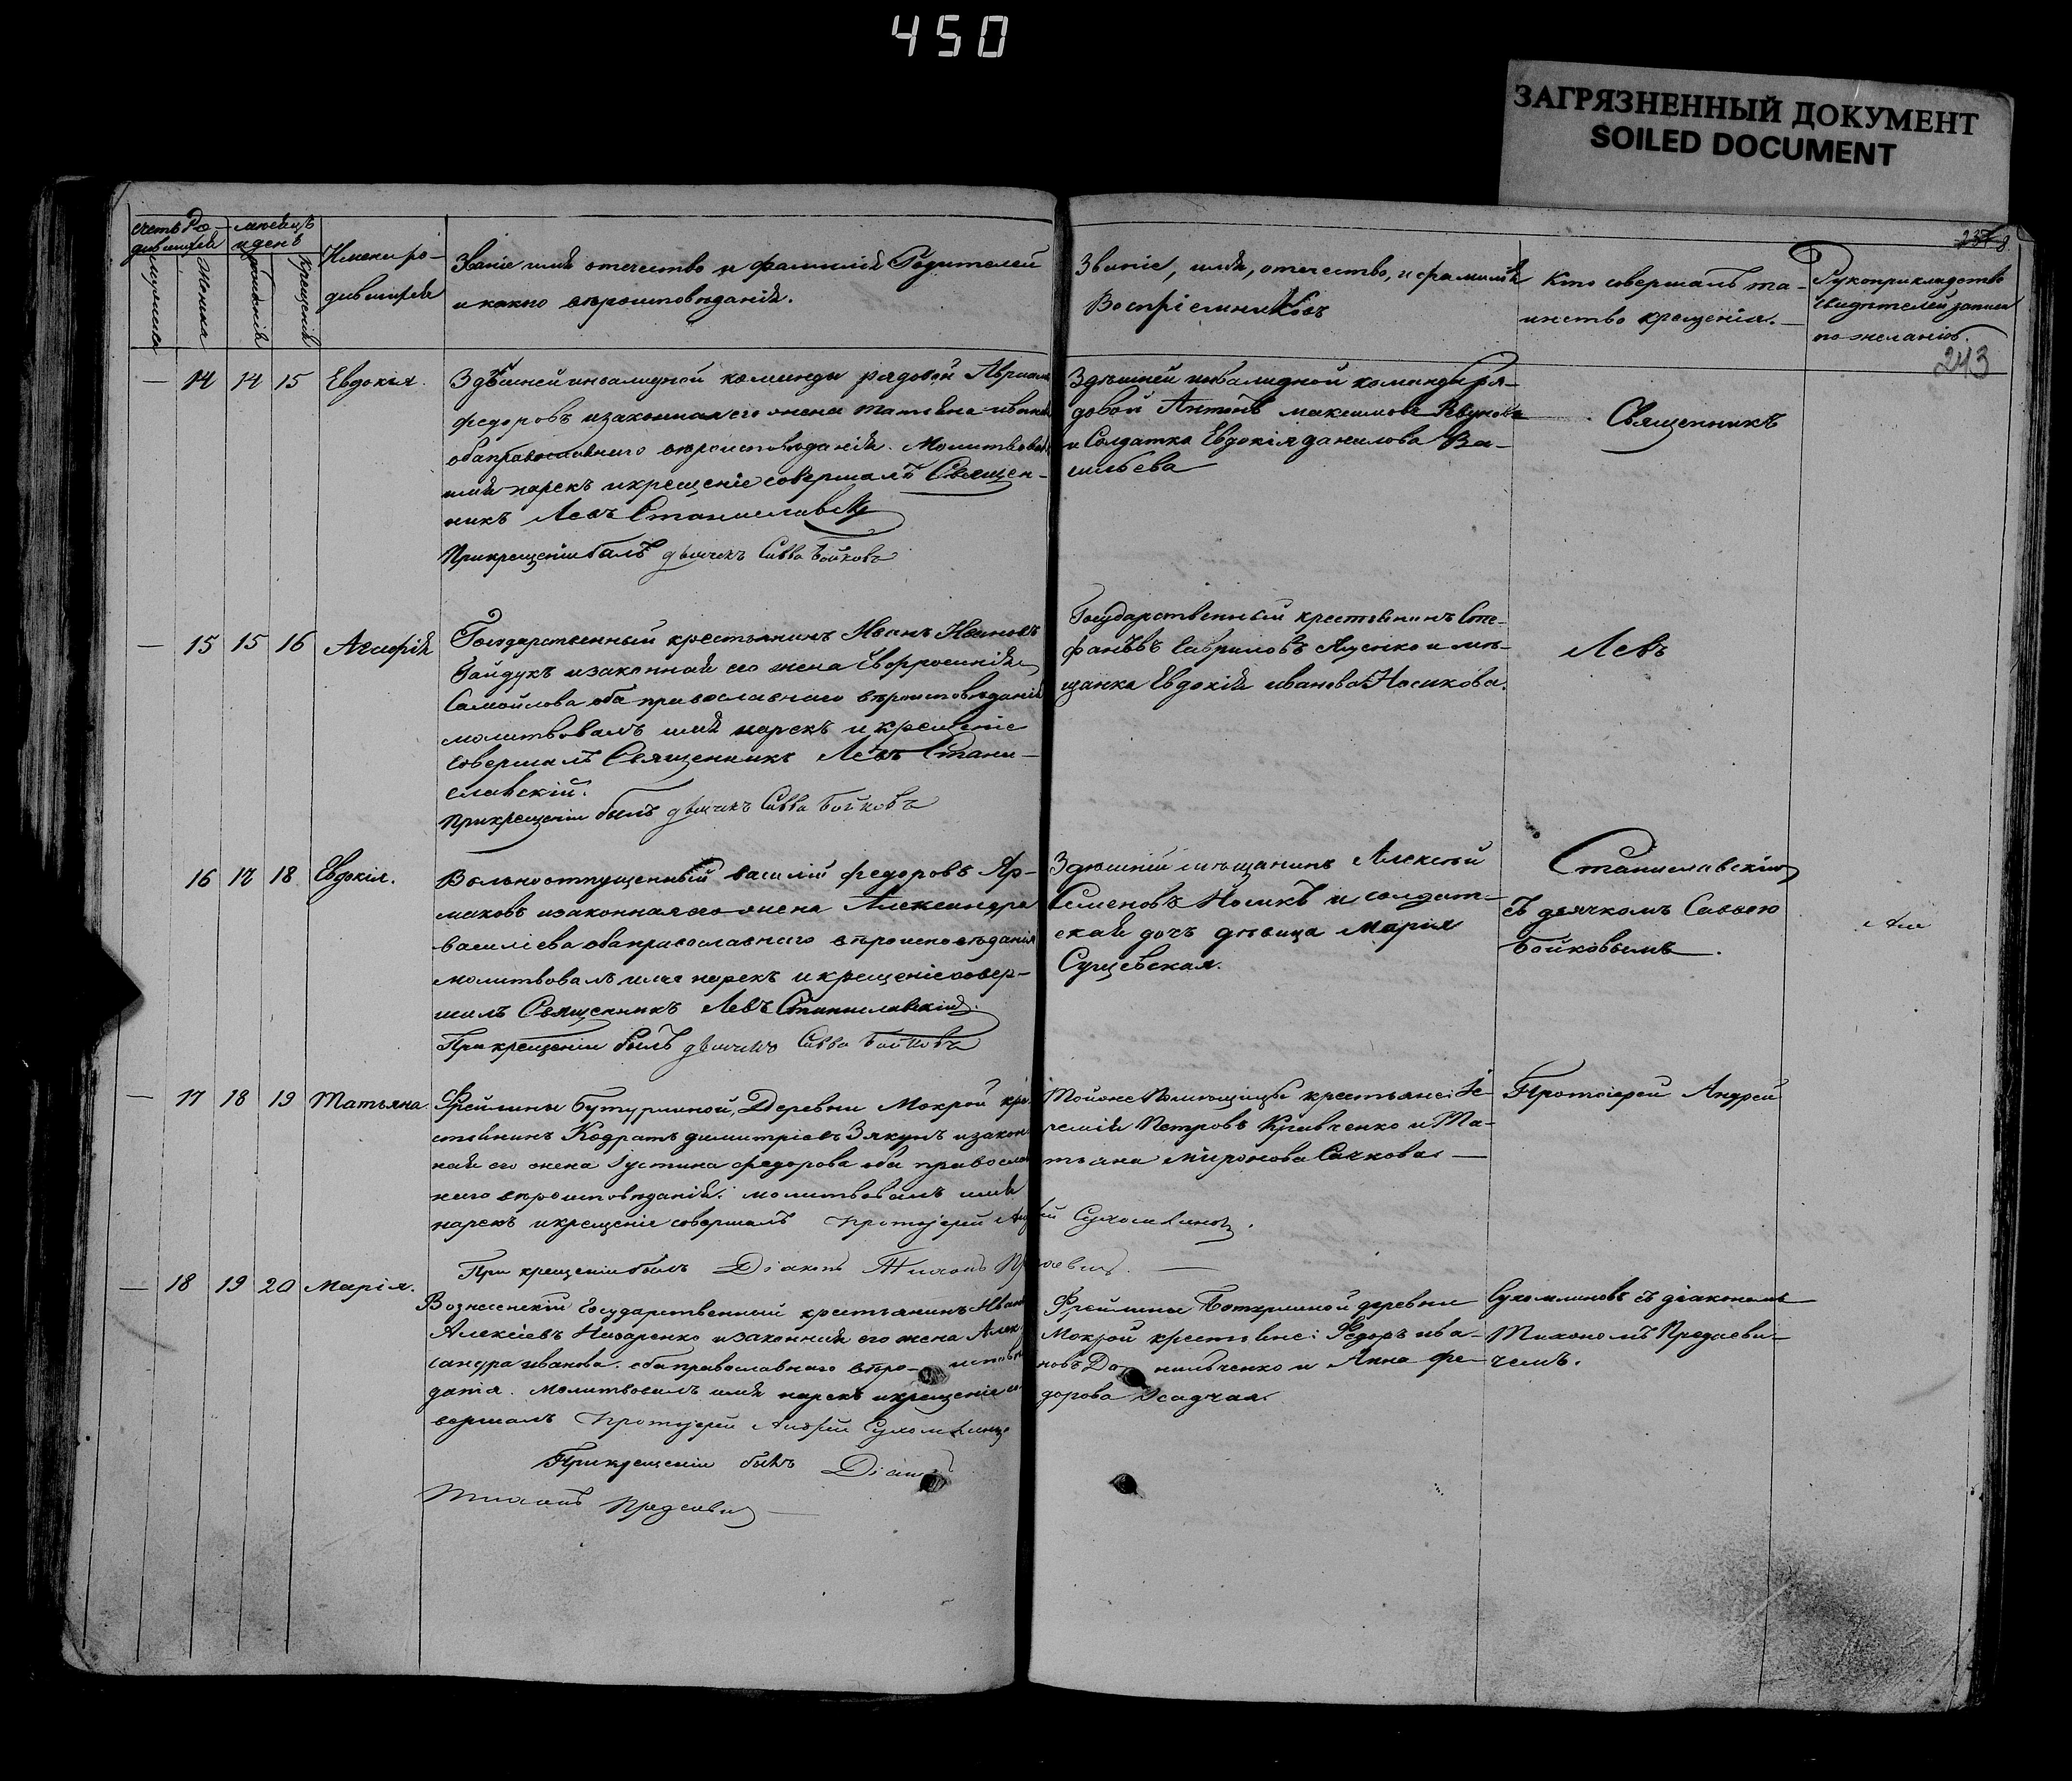 450
ЗАГРЯЗНЕННЫЙ ДОКУМЕНТ
SOILED DOCUMENT
237 8
243
счетъ Ро-
дившихся
мѣсяцъ
и день
мужеска
женска
рожденія
крещенія
Имена ро-
дившихся
Званіе имя отечество и фамилія Родителей
и какого вѣроисповѣданія.
Званіе, имя, отечество, и фамилія
Воспріемниковъ
Кто совершалъ та-
инство крещенія.
Рукоприкладство
свидѣтелей записи
по желанію.
— 14 14 15 Евдокія.
Здѣшней инвалидной команды рядовой Авраамъ
федоровъ и законная его жена Татьяна иванова
оба православнаго вѣроисповѣданія. Молитвовалъ
имя нарекъ и крещеніе совершалъ Священ-
никъ Левъ Станиславскій
При крещеніи былъ дьячекъ Савва Бойковъ
Здѣшней инвалидной команды ря-
довой Антонъ максимовъ
и Солдатка Евдокія данилова Ва-
сильева
Священникъ
— 15 15 16 Агафія
Государственный крестьянинъ Иванъ Ивановъ
Гайдукъ и законная его жена Евфросинія
Самойлова оба православнаго вѣроисповѣданія
молитвовалъ имя нарекъ и крещеніе
совершалъ Священникъ Левъ Стани-
славскій.
При крещеніи былъ дьячекъ Савва Бойковъ
Государственный крестьянинъ Сте-
фанъ Гавриловъ Яценко и мѣ-
щанка Евдокія иванова Носикова.
Левъ
16 17 18 Евдокія.
Вольноотпущенный василій федоровъ Яр-
маковъ и законная его жена Александра
василіева оба православнаго вѣроисповѣданія
молитвовалъ имя нарекъ и крещеніе совер-
шилъ Священникъ Левъ Станиславскій.
При крещеніи былъ дьячекъ Савва Бойковъ
Здѣшній мѣщанинъ Алексѣй
Семеновъ Носикъ и солдат-
ская дочъ дѣвица Марія
Сущевская.
Станиславскій
съ дьячкомъ Саввою
Бойковымъ.
— 17 18 19 Татьяна.
Фрейлины Бутурлиной, Деревни Мокрой кре-
стьянинъ Кодратъ димитріевъ Зякунъ и закон
ная его жена Іустина федорова оба православ
наго вѣроисповѣданія. молитвовалъ имя
нарекъ и крещеніе совершалъ Протоіерей Андрей Сухомлиновъ.
При крещеніи былъ Діаконъ Тихонъ Предаевичъ. —
Той же Помѣщицы крестьяне: Іе-
ремія Петровъ Кривченко и Та-
тьяна Миронова Сачкова —
Протоіерей Андрей
— 18 19 20 Марія.
Вознесенскій Государственный крестьянинъ Иванъ
Алексіевъ Назаренко и законная его жена Алек
сандра иванова. оба православнаго вѣро- исповѣ
данія. молитвовалъ имя нарекъ и крещеніе со
вершалъ Протоіерей Андрей Сухомлиновъ
При крещеніи былъ Діаконъ
Тихонъ Предаевичъ —
Фрейлины Ботхрлиной деревни
Мокрой крестьяне: Федоръ ива-
новъ Да нильченко и Анна фе-
дорова Осадчая.
Сухомлиновъ съ діакономъ
Тихономъ Предаеви-
чемъ.